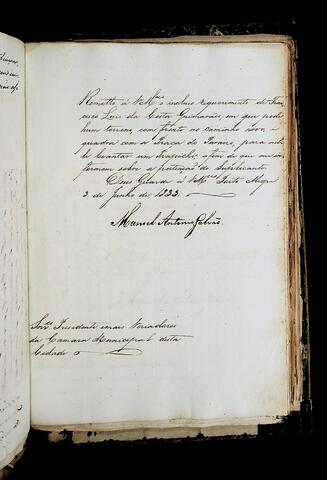 Remetto á VM.ces o incluso requerimento de Fran
cisco Luis da Costa Guimarães, em que pede
hum terreno, com frente ao caminho novo, e
quadra com a Praça do Paraizo, para nel
le levantar um Trapiche, a fim de que
formem sobre a pertenção do Supplicante.
Deos Guarde á VM.ces Porto Alegre
3 de Junho de 1833.
Manoel Antonio Galvão.
Snr.es Presidente e mais Veriadores
da Camara Municipal desta
Cidade